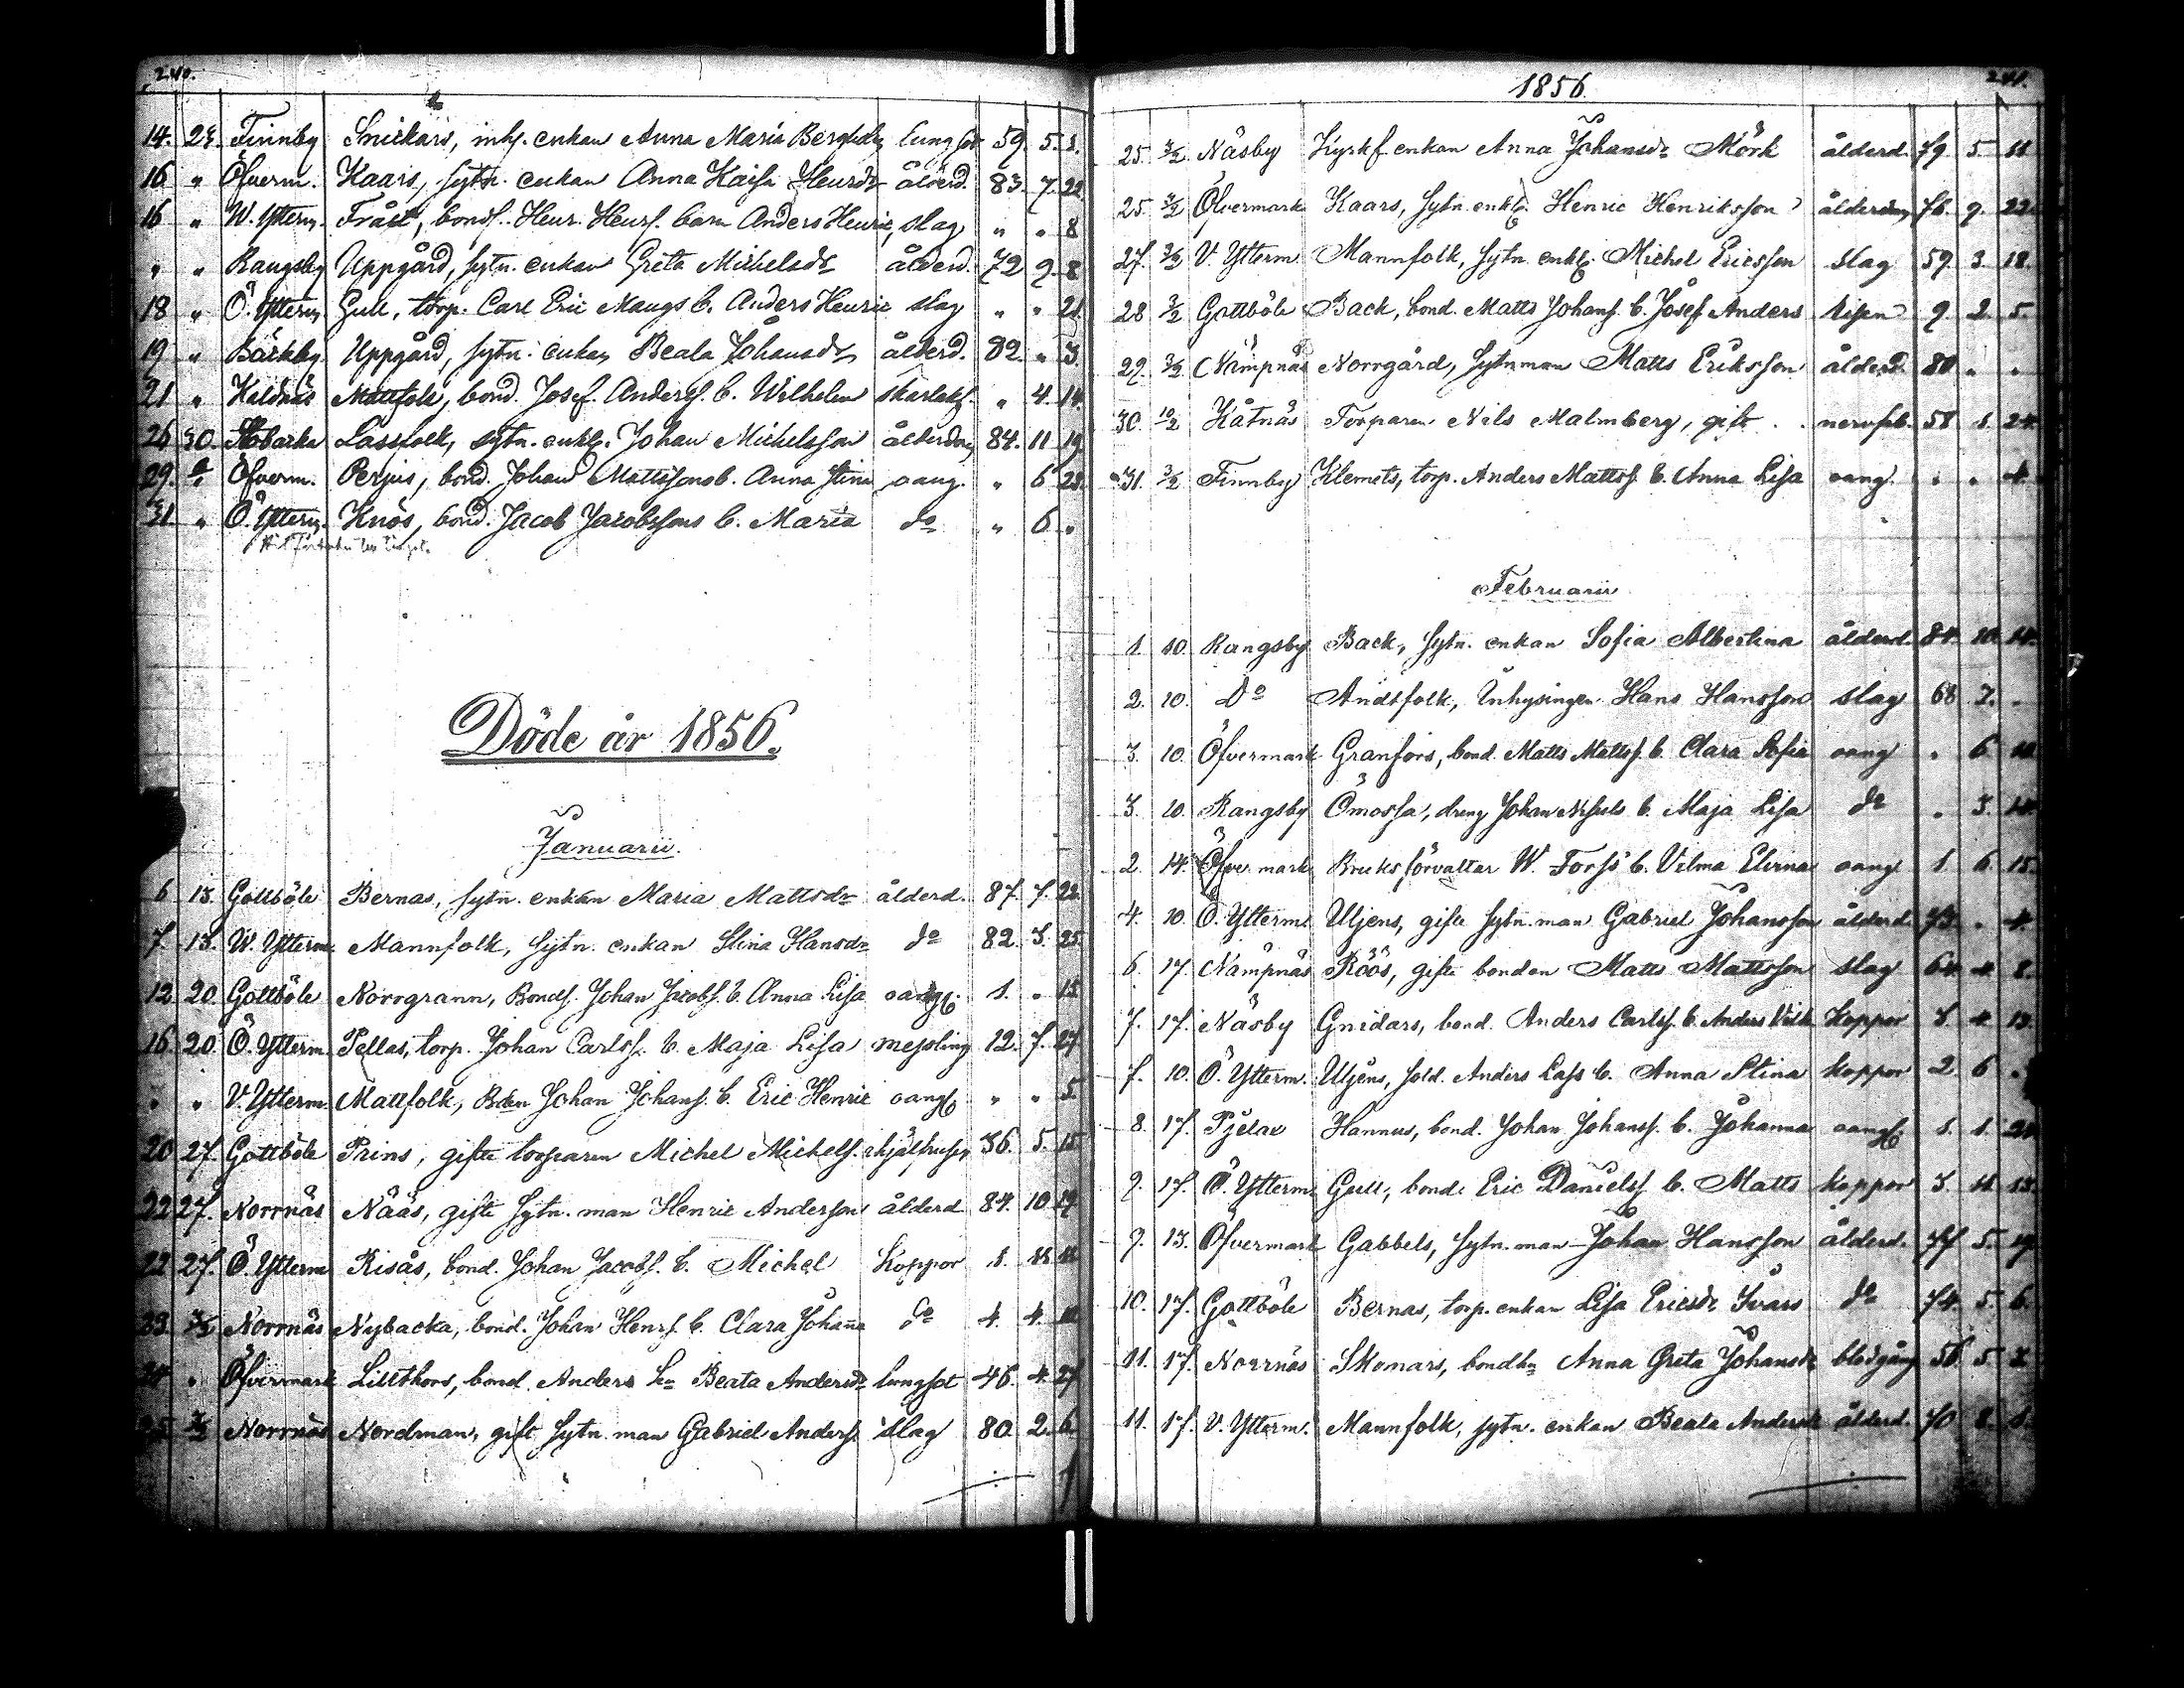 240.
14. 23. Finnby Snickars, inhs. enkan Anna Maria Berglund lungsot 59. 5. 1.
16 " Öfverm. Kaars, sytn. enkan Anna Kaisa Henrsdr ålderd. 83. 7. 22.
16 " W. Ytterm. Fråst, bonds. Henr. Henrs. barn Anders Henric, slag " " 8
" " Rangsby Uppgård, sytn. enkan Greta Michelsdr ålderd. 72 9. 8.
18 " Ö. Ytterm. Gull, torp. Carl Eric Mangs b. Anders Henric slag " " 21.
19 " Böckby Uppgård, sytn. enkan Beata Johansdr ålderd. 82 " 3.
21 " Kaldnäs Mattfolk, bond. Josef Anderss. b. Wilhelm skarlakf. " 4. 14.
26 30. Stobacka Lassfolk, sytn. enkl. Johan Michelsson ålderdom 84. 11 19.
29. Öfverm. Perjus, bond. Johan Mattssons b. Anna Stina oang. " 6 28.
31. " Ö. Ytterm. Knös, bond. Jacob Jacobssons b. Maria do " 6 "
Döde år 1856.
Januarii.
6 13. Gottböle Bernas, sytn. enkan Maria Mattsdr ålderd. 87. 7. 22.
7 13. W. Ytterm. Mannfolk, sytn. enkan Stina Hansdr do 82. 3. 25.
12 20 Gottböle Norrgrann, Bonds. Johan Jacobs. b. Anna Lisa oang. 1. " 15
16. 20 Ö. Ytterm. Pellas, torp. Johan Carlss. b. Maja Lisa messling 12. 7. 27.
" " V. Ytterm. Mattfolk, Bden Johan Johans. b. Eric Henric oang. " " 5.
20 27. Gottböle Prins, gifte torparen Michel Michels. ihjälfrusen 36. 5. 15
22 27. Norrnäs Nääs, gifte sytn. man Henric Andersson ålderd. 84. 10 19
22 27. Ö. Ytterm. Risås, bond. Johan Jacobs. b. Michel Koppor 1. 11. 11.
23. 3/2 Norrnäs Nybacka, bond. Johan Henrs. b. Clara Johanna do 4. 4. 10.
24 " Öfvermark Lillthors, bond. Anders hu Beata Andersdr lungsot 46. 4. 27
25 3/2 Norrnäs Nordman, gift sytn. man Gabriel Anderss. slag 80. 2. 6.
1856.
241.
25. 3/2 Näsby Kyrkf. enkan Anna Johansdr Mörk ålderd. 79. 5. 11
25. 3/2 Öfvermark Kaars, sytn. enkl. Henric Henriksson ålderdom 76. 9. 22.
27. 3/2 V. Ytterm. Mannfolk, sytn. enkl. Michel Ericsson slag 59. 3. 18.
28 3/2 Gottböle Back, bond. Matts Johans. b. Josef Anders 9. 2. 5.
29. 3/2 Nämpnäs Norrgård, Sytnman Matts Eriksson ålderd. 80 " "
30. 10/2 Kåtnäs Torparen Nils Malmberg, gift nervfeb. 58 1. 24.
31. 3/2 Finnby Klemets, torp. Anders Mattss. b. Anna Lisa oang. " " 4
Februarii
1. 10. Rangsby Back, sytn. enkan Sofia Albertina ålderd. 84. 10. 14.
2. 10. Do Andtfolk, Inhysingen Hans Hansson slag 68 7. "
3. 10. Öfvermark Granfors, bond. Matts Mattss. b. Clara Sofia oang " 6
3. 10. Rangsby Ömossa, dreng Johan Nissuls b. Maja Lisa do " 3.
2. 14. Öfvermark Bruksförvaltar W. Forss b. Vilma Elvina oang 1. 6. 15.
4. 10. Ö. Ytterm. Utjens, gifte sytn. man Gabriel Johansson ålderd. 73. " 4.
6. 17. Nämpnäs Röös, gifte bonden Matts Mattsson slag 64. 4. 8.
7. 17. Näsby Gnidars, bond. Anders Carlss. b. Anders Vilh. Koppor 3. 4. 13.
7. 10. Ö. Ytterm. Utjens, sold. Anders Lass b. Anna Stina koppor 2 6 "
8. 17. Pjelax Hannus, bond. Johan Johanss. b. Johanna oang. 1. 1. 21.
9. 17. Ö. Ytterm. Gull, bond. Eric Danielss. b. Matts koppor 3. 11. 13.
9. 13. Öfvermark Gabbels, sytn. man Johan Hansson ålderd. 77 5. 19.
10. 17. Gottböle Bernas, torp. enkan Lisa Ericsdr Ivars do 74. 5. 6.
11. 17. Norrnäs Skomars, bondhu Anna Greta Johansdr blodgång 56 5.
11. 17. V. Ytterm. Mannfolk, sytn. enkan Beata Andersdr ålderd. 70 8. 1.